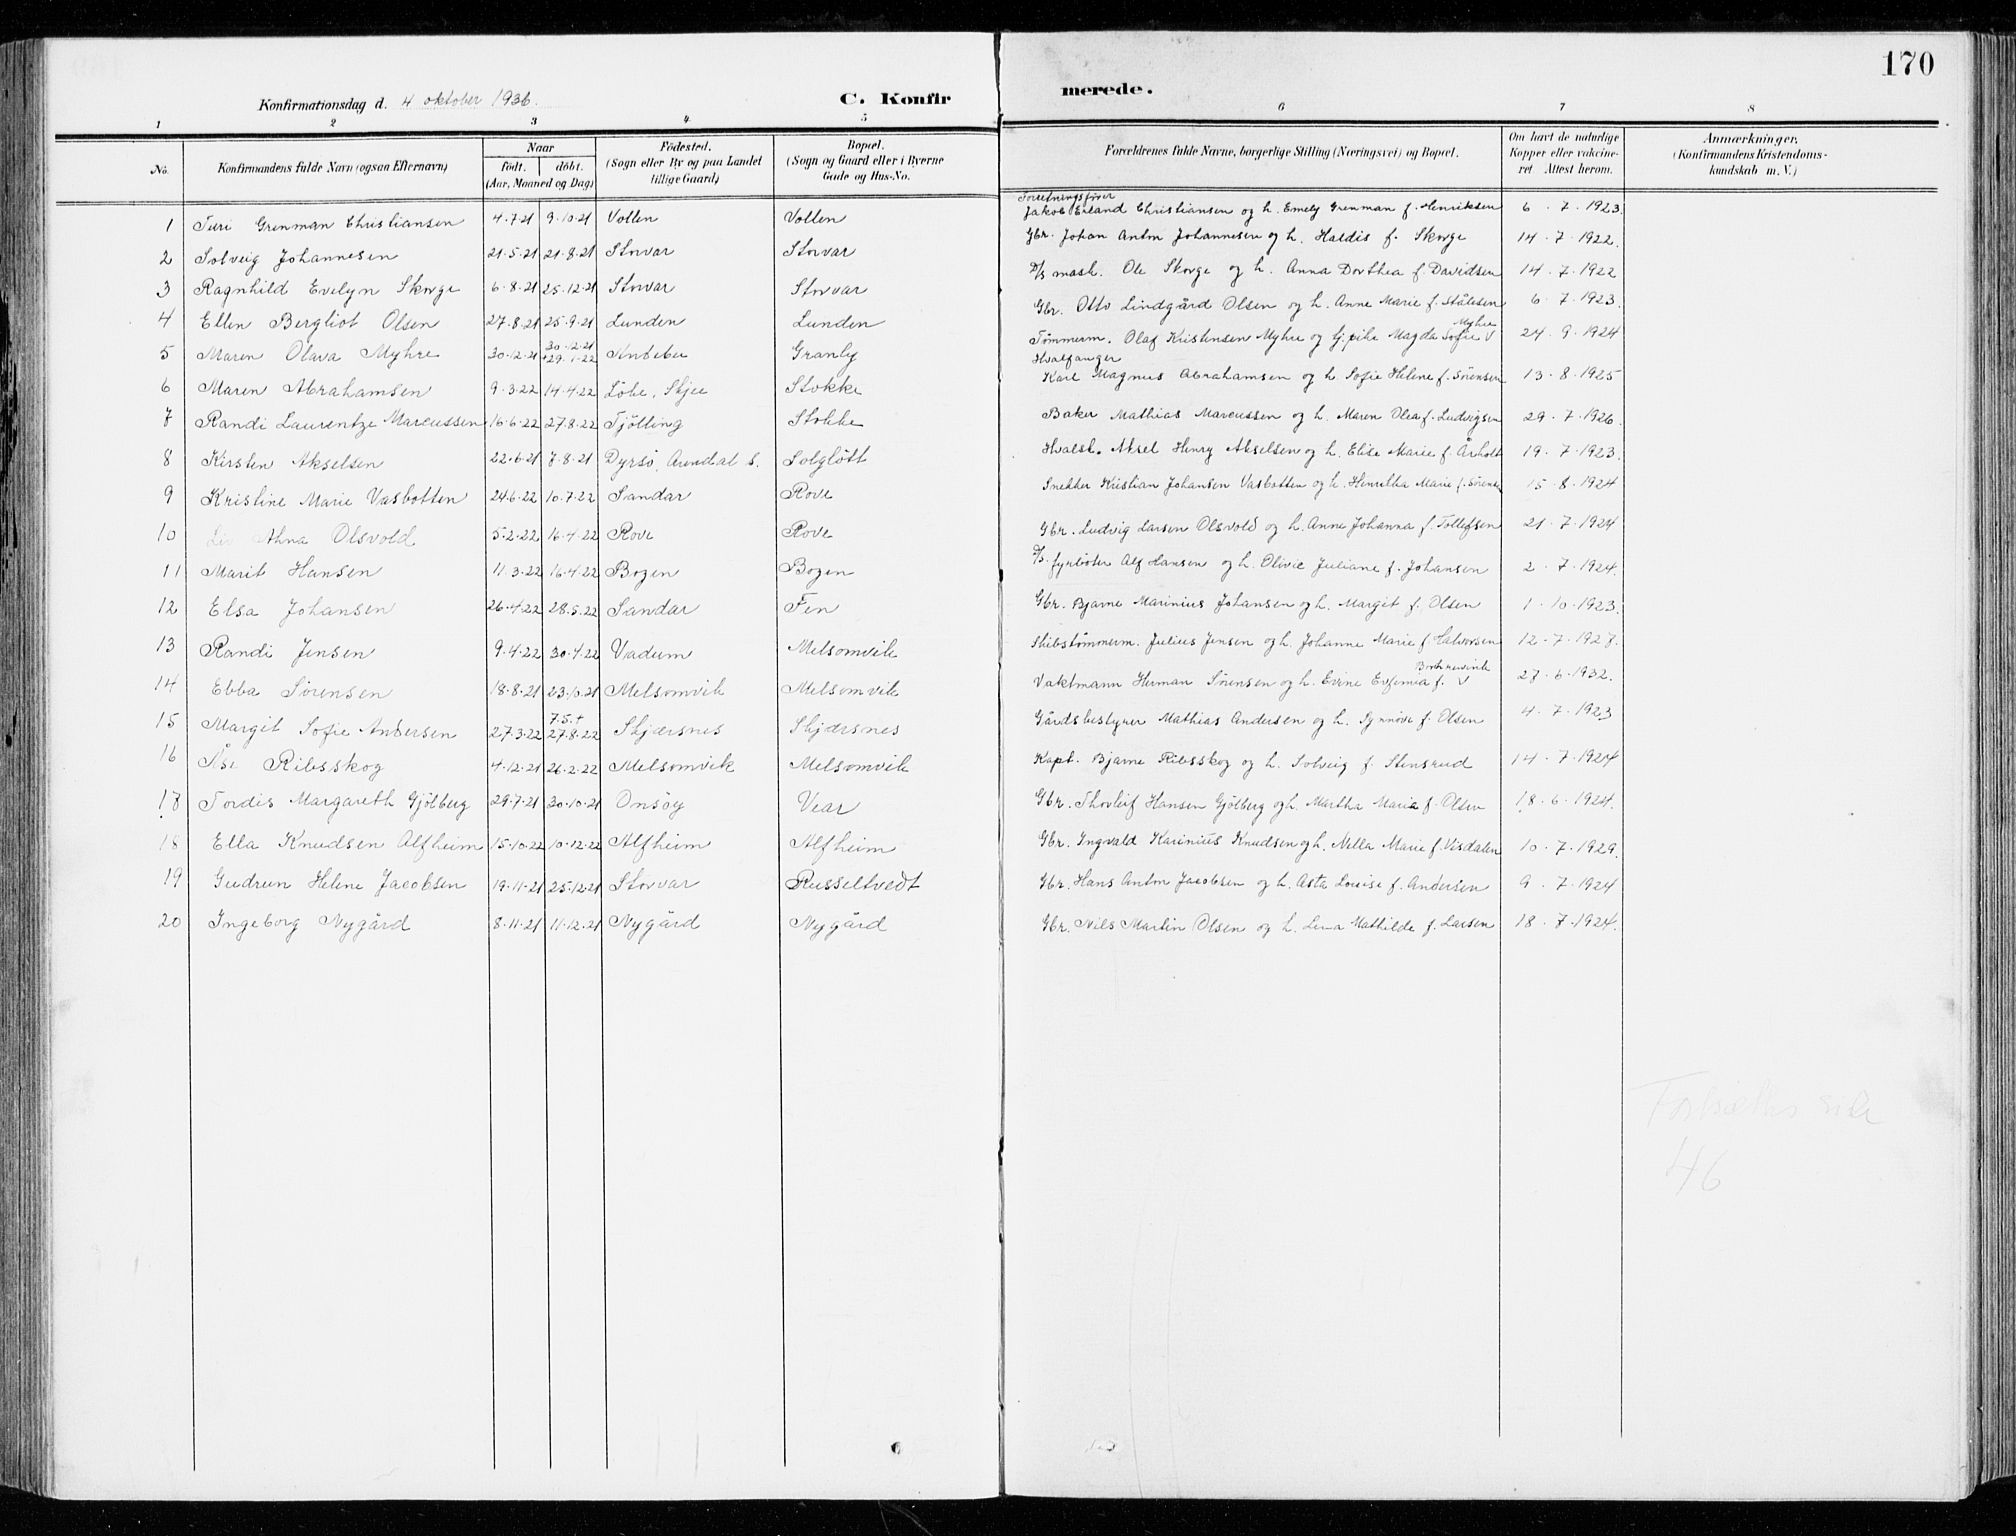 170
Konfirmationsdag d. 4 oktober 1936. C. Konfirmerede.
1 2 3 4 5 6 7 8
No. Konfirmandens fulde Navn (ogsaa Efternavn) Naar født. døbt. (Aar, Maaned og Dag) Fødested. (Sogn eller By og paa Landet tillige Gaard) Bopæl. (Sogn og Gaard eller i Byerne Gade og Hus-No. Forældrenes fulde Navne, borgerlige Stilling (Næringsvei) og Bopæl. Om havt de naturlige Kopper eller vaccineret. Attest herom. Anmærkninger. (Konfirmandens Kristendomskundskab m. V.)
1 Turi Grenman Christiansen 4.7.21 9.10.21 Vollen Vollen Forretningsfører Jakob Erland Christiansen og h. Emely Grenman f. Henriksen 6.7.1923.
2 Solveig Johannesen 21.5.21 21.8.21 Storvar Storvar Gbr. Johan Anton Johannesen og h. Haldis f. Skorge 14.7.1922.
3 Ragnhild Evelyn Skorge 6.8.21 25.12.21 Storvar Storvar D/S mask. Ole Skorge og h. Anna Dorthea f. Davidsen 14.7.1922
4 Ellen Bergliot Olsen 27.8.21 25.9.21 Lunden Lunden Gbr. Otto Lindgård Olsen og h. Anne Marie f. Stålesen 6.7.1923.
5 Maren Olava Myhre 30.12.21 30.12.21 + 29.1.22 Andebu Granly Tømmerm. Olaf Kristensen Myhre og tj.pike Magda Sofie Myhre 24.9.1924
6 Maren Abrahamsen 9.3.22 14.4.22 Løke, Skjee Stokke Hvalfanger Karl Magnus Abrahamsen og h. Sofie Helene f. Sørensen 13.8.1925
7 Randi Laurentze Marcussen 16.6.22 27.8.22 Tjølling Stokke Baker Mathias Marcussen og h. Maren Olea f. Ludvigsen 29.7.1926.
8 Kirsten Akselsen 22.6.21 7.8.21 Dyrsø, Arendal s. Solgløtt Hvalsk. Aksel Henry Akselsen og h. Elise Marie f. Årholt 19.7.1923.
9 Kristine Marie Vasbotten 24.6.22 10.7.22 Sandar Rove Snekker Kristian Johansen Vasbotten og h. Henrikka Marie f. Sørensen 15.8.1924
10 Liv Anna Olsvold 5.2.22 16.4.22 Rove Rove Gbr. Ludvig Larsen Olsvold og h. Anne Johanna f. Tollefsen 21.7.1924
11 Marit Hansen 11.3.22 16.4.22 Bogen Bogen D/S. fyrbøter Alf Hansen og h. Olivie Juliane f. Johansen 2.7.1924.
12 Elsa Johansen 26.4.22 28.5.22 Sandar Fen Gbr. Bjarne Marinius Johansen og h. Margit f. Olsen 1.10.1923.
13 Randi Jensen 9.4.22 30.4.22 Vadum Melsomvik Skibstømmerm. Julius Jensen og h. Johanne Marie f. Halvorsen 12.7.1927.
14 Ebba Sørensen 18.8.21 23.10.21 Melsomvik Melsomvik Vaktmann Herman Sørensen og h. Evine Eufemia f. 27.6.1932.
15 Margit Sofie Andersen 27.3.22 7.5. + 27.8.22 Skjærsnes Skjærsnes Gårdsbestyrer Mathias Andersen og h. Synnøve f. Olsen 4.7.1923
16 Åse Ribsskog 4.12.21 26.2.22 Melsomvik Melsomvik Kapt. Bjarne Ribsskog og h. Solveig f. Stensrud 14.7.1924
17 Tordis Margareth Gjølberg 29.7.21 30.10.21 Onsøy Vear Gbr. Thorleif Hansen Gjølberg og h. Martha Maria f. Olsen 18.6.1924.
18 Ella Knudsen Alfheim 15.10.22 10.12.22 Alfheim Alfheim Gbr. Ingvald Karinius Knudsen og h. Nella Marie f. Visdalen 10.7.1929.
19 Gudrun Helene Jacobsen 19.11.21 25.12.21 Storvar Russeltvedt Gbr. Hans Anton Jacobsen og h. Asta Louise f. Andersen 9.7.1924
20 Ingeborg Nygård 8.11.21 11.12.21 Nygård Nygård Gbr. Nils Martin Olsen og h. Lina Mathilde f. Larsen 18.7.1924.
Fortsættes side
46